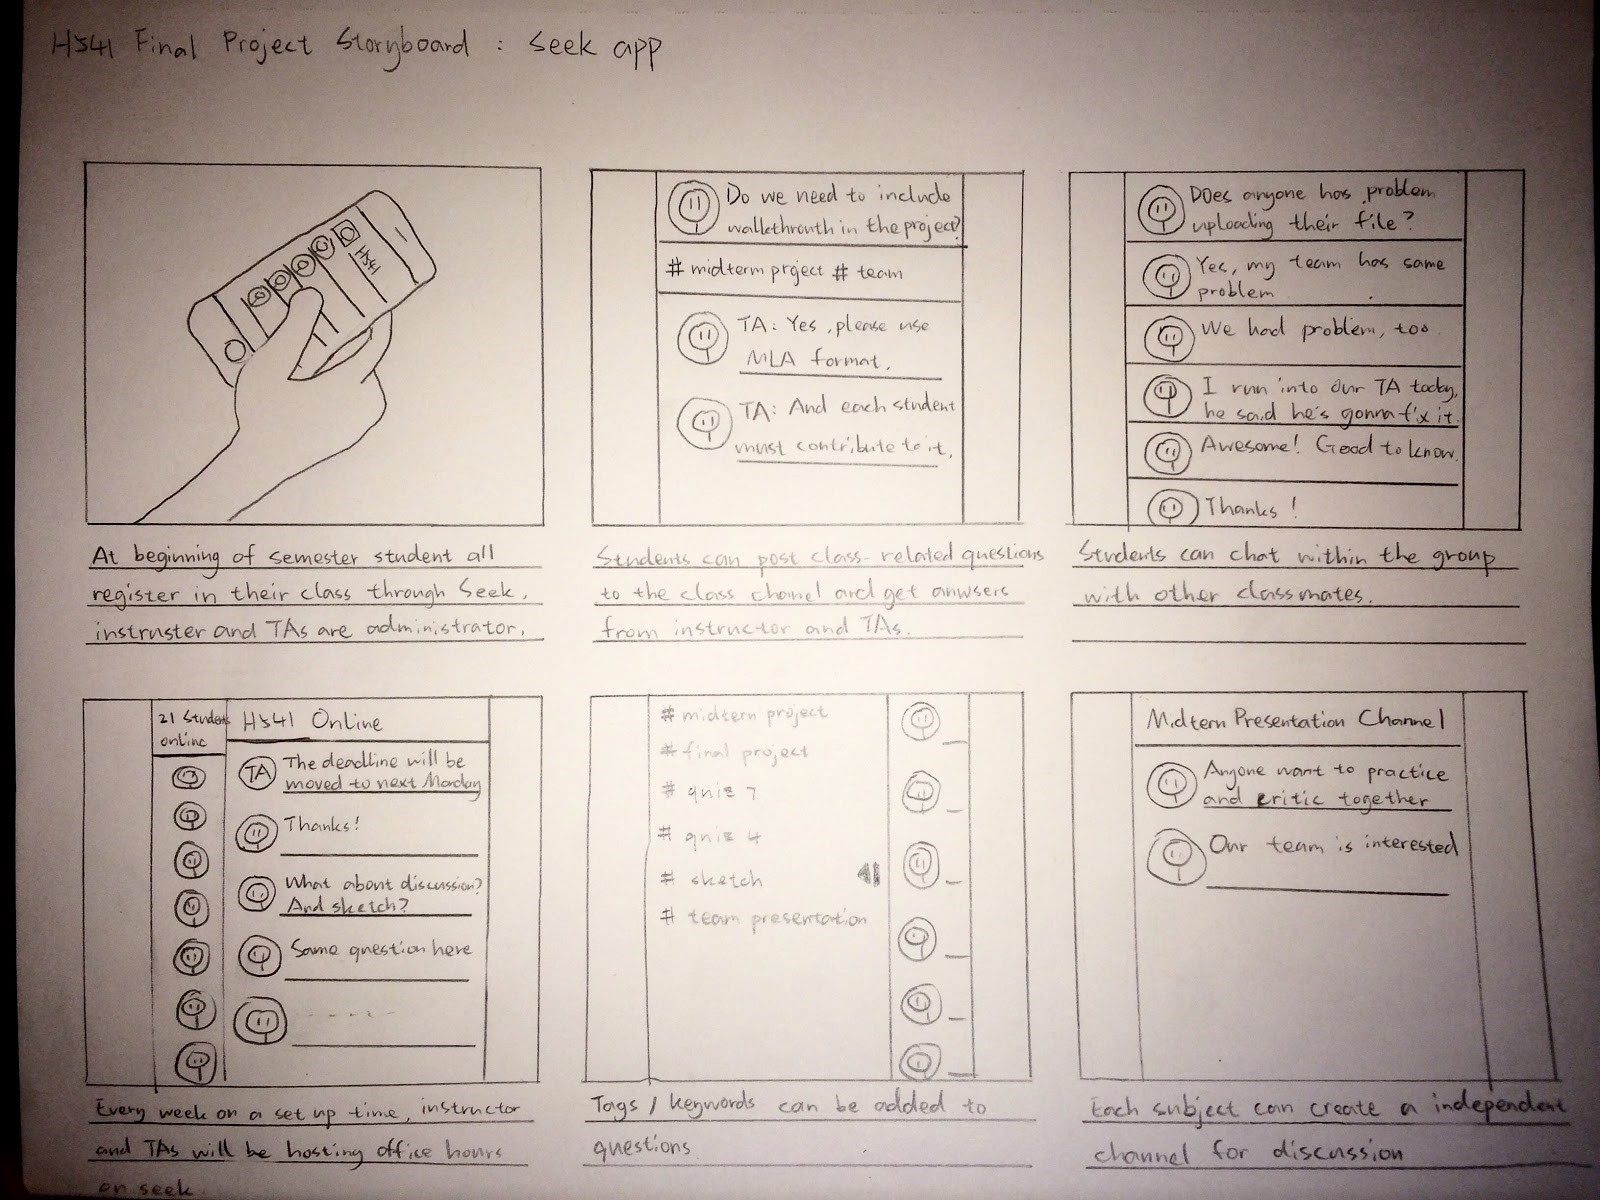 H541 Final Project Storyboard : Seek app
H541
At beginning of semester student all
register in their class through Seek,
instruster and TAs are administrator.
Do we need to include
walkthrouth in the project?
# midterm prject # team
TA: Yes, please use
MLA format.
TA: And each student
must contribute to it.
Students can post class-related questions
to the class chanel and get anwsers
from instructor and TAs.
Does anyone has problem
uploading their file?
Yes, my team has same
problem
We had problem, too.
I run into our TA today,
he said he's gonna fix it.
Awesome! Good to know.
Thanks!
Students can chat within the group
with other classmates.
21 Students
online
H541 Online
TA
The deadline will be
moved to next Monday
Thanks!
What about discussion?
And sketch?
Same question here
Every week on a set up time, instructor
and TAs will be hosting office hours
on seek
# midtern project
# final project
# quiz 7
# quiz 4
# sketch
# team presentation
Tags / keywords can be added to
questions
Midtern Presentation Channel
Anyone want to practice
and critic together
Our team is interested
Each subject can create a independent
channel for discussion